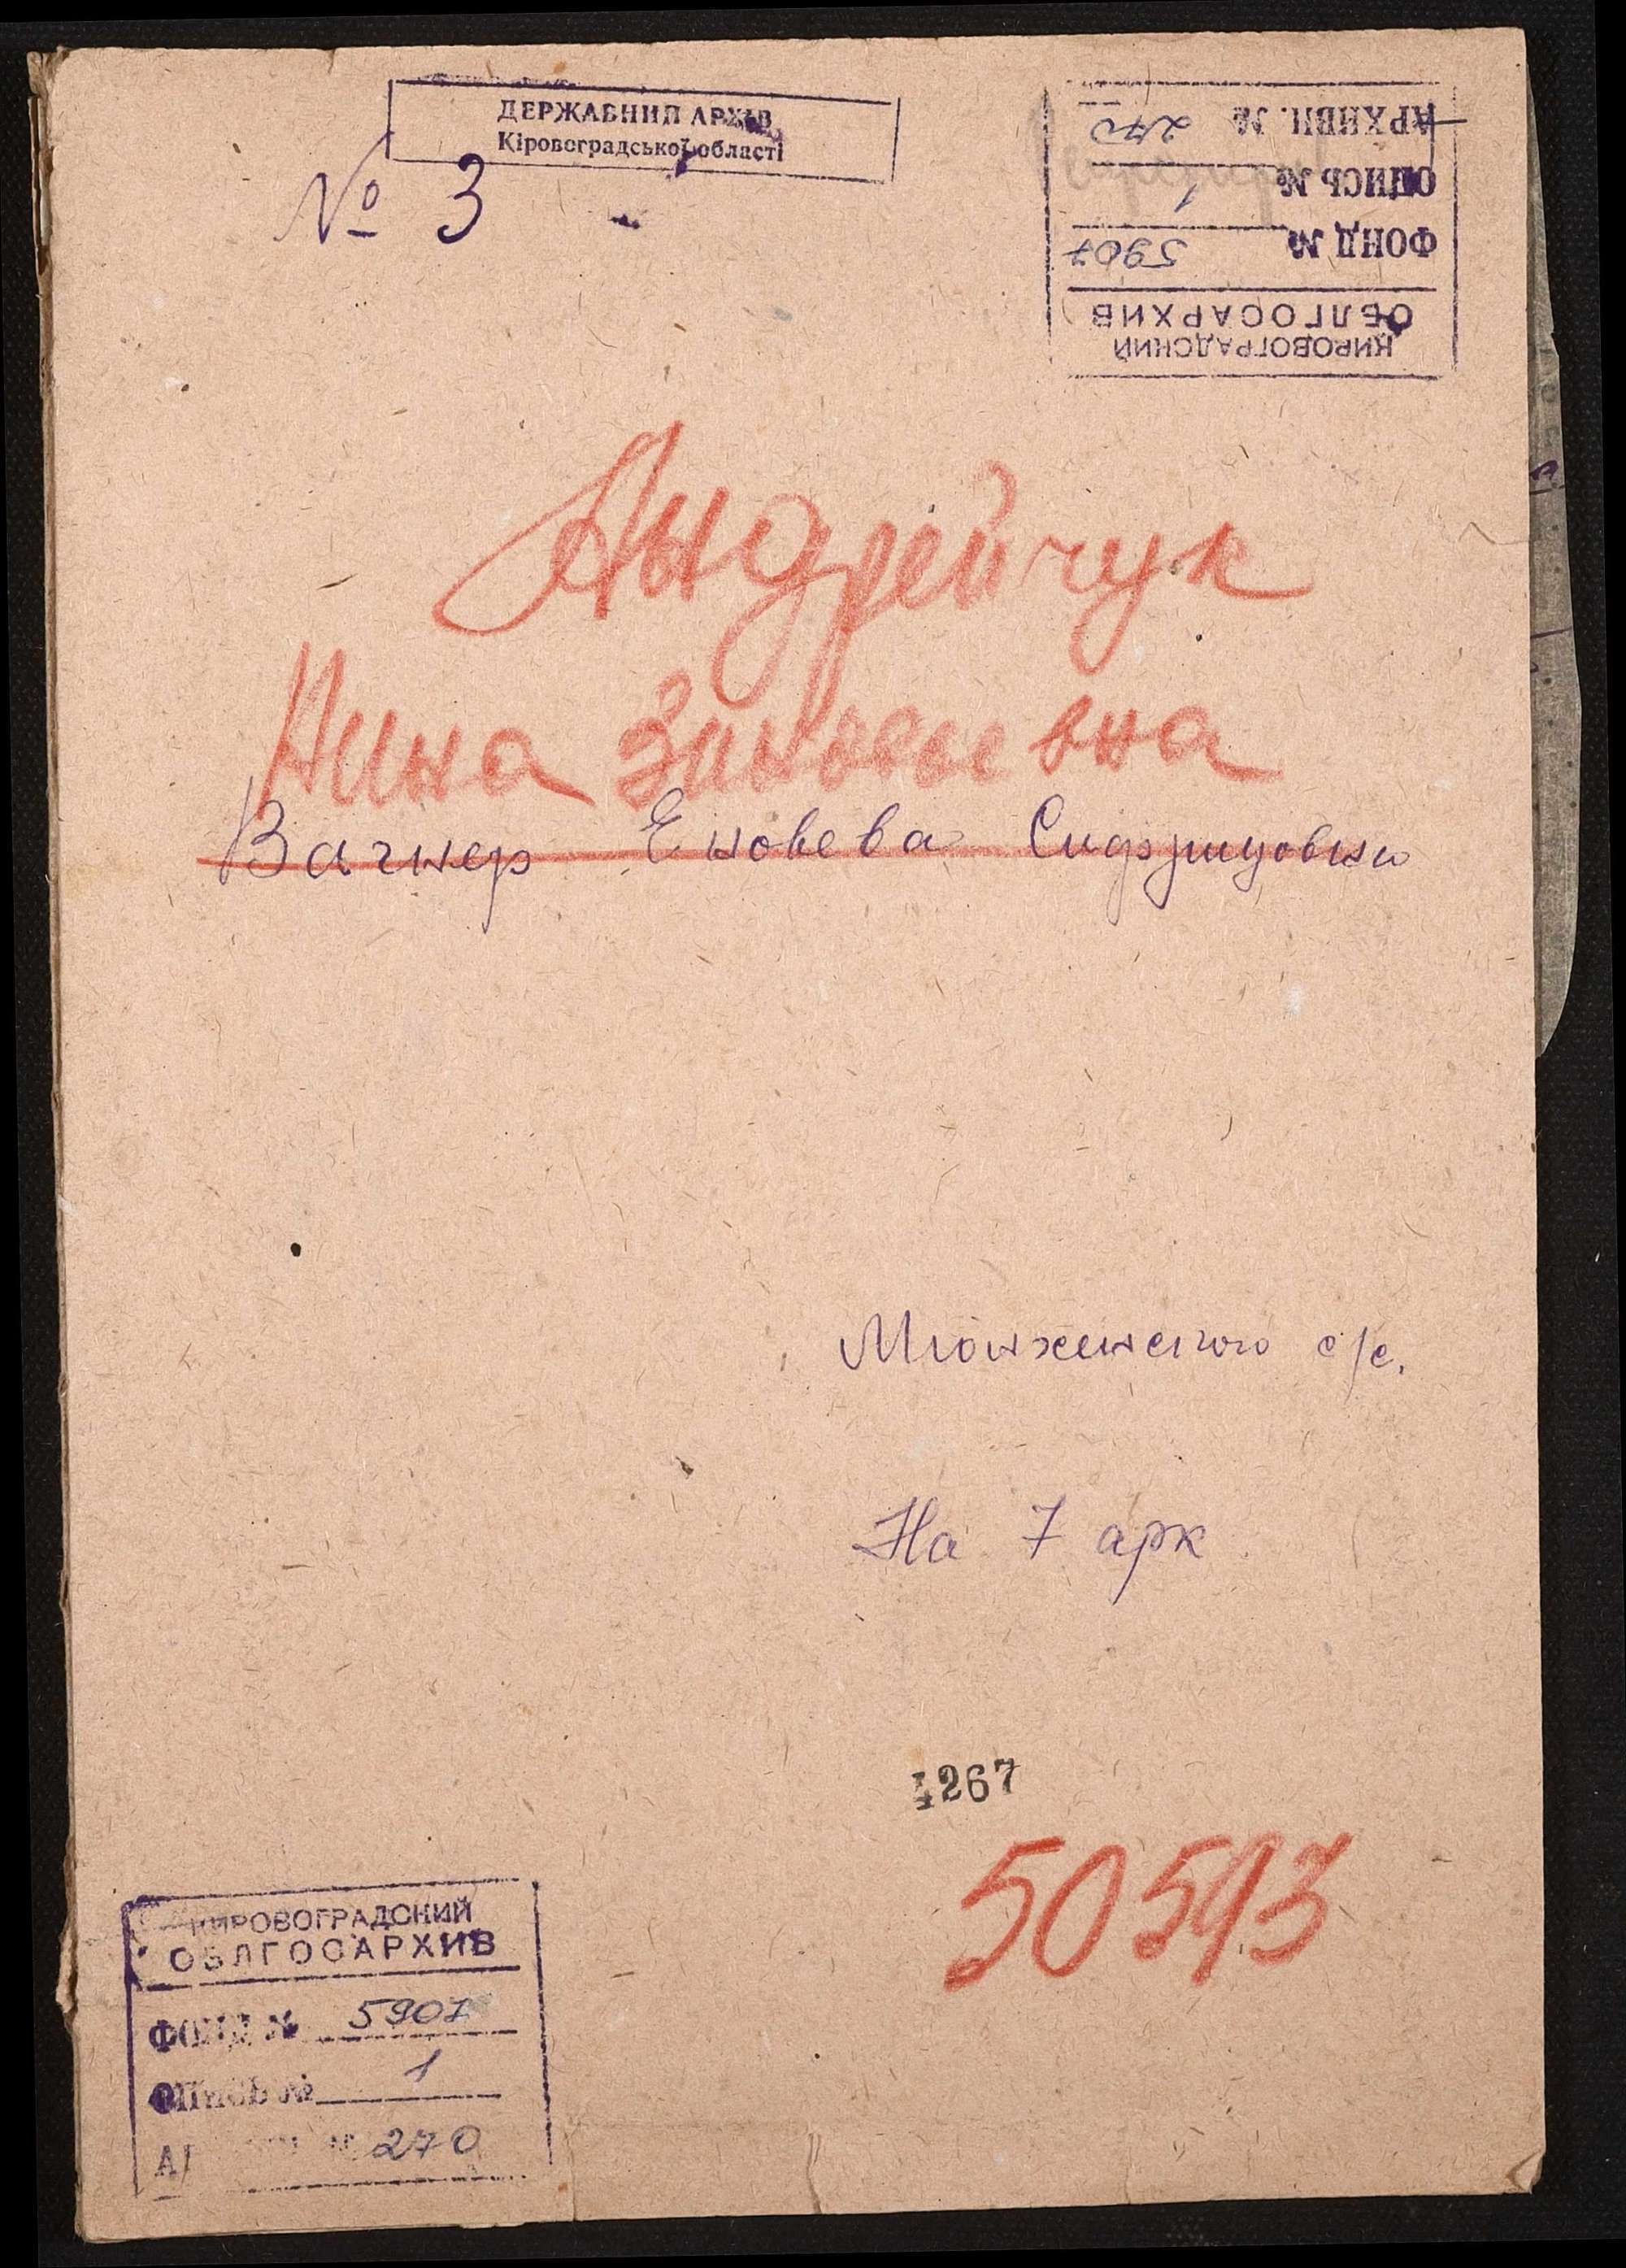 ДЕРЖАВНИЙ АРХІВ
Кіровоградської області
№ 3
КИРОВОГРАДСКИЙ
ОБЛГОСАРХИВ
ФОНД № 5907
ОПИСЬ № 1
АРХИВН. № 270
Андрейчук
Нина Зиновьевна
Вагнер Еновева
Мюнхенского с/с.
На 7 арк
4267
50593
КИРОВОГРАДСКИЙ
ОБЛГОСАРХИВ
ФОНД № 5907
ОПИСЬ № 1
№ 270